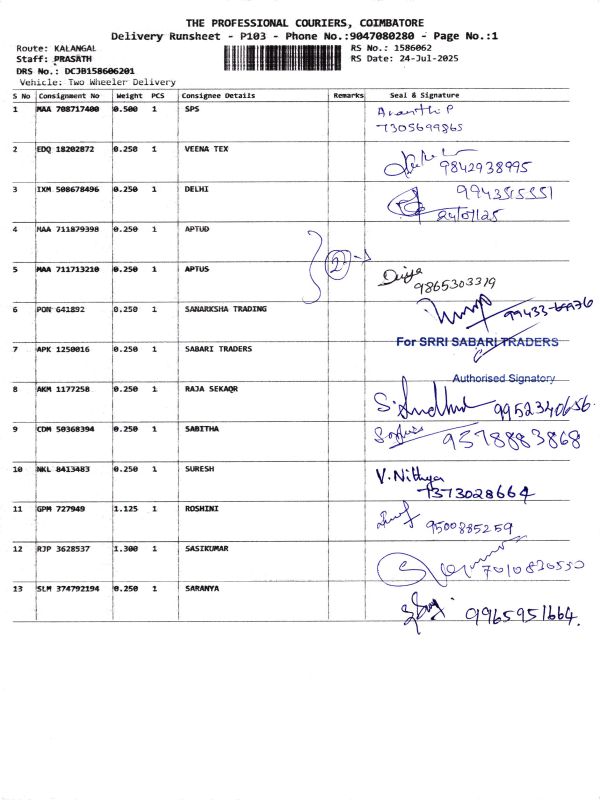 THE PROFESSIONAL COURIERS, COIMBATORE
Delivery Runsheet - P103 - Phone No.:9047080280 - Page No.:1
Route: KALANGAL RS No.: 1586062
Staff: PRASATH RS Date: 24-Jul-2025
DRS No.: DCJB158606201
Vehicle: Two Wheeler Delivery
S No Consignment No Weight PCS Consignee Details Remarks Seal & Signature
1 MAA 708717400 0.500 1 SPS Ananthi P
7305699865
2 EDQ 18202872 0.250 1 VEENA TEX
9842938995
3 IXM 508678496 0.250 1 DELHI 9943515351
24/07/25
4 MAA 711879398 0.250 1 APTUD
2
5 MAA 711713210 0.250 1 APTUS Divya
9865303319
6 PON 641892 0.250 1 SANARKSHA TRADING
7 APK 1250016 0.250 1 SABARI TRADERS For SRRI SABARI TRADERS
Authorised Signatory
8 AKM 1177258 0.250 1 RAJA SEKAQR S. Sudha 9952340656
9 CDM 50368394 0.250 1 SABITHA 9578883868
10 NKL 8413483 0.250 1 SURESH V. Nithya
7373028664
11 GPM 727949 1.125 1 ROSHINI
9500885259
12 RJP 3628537 1.300 1 SASIKUMAR
7010830550
13 SLM 374792194 0.250 1 SARANYA 9965951664.